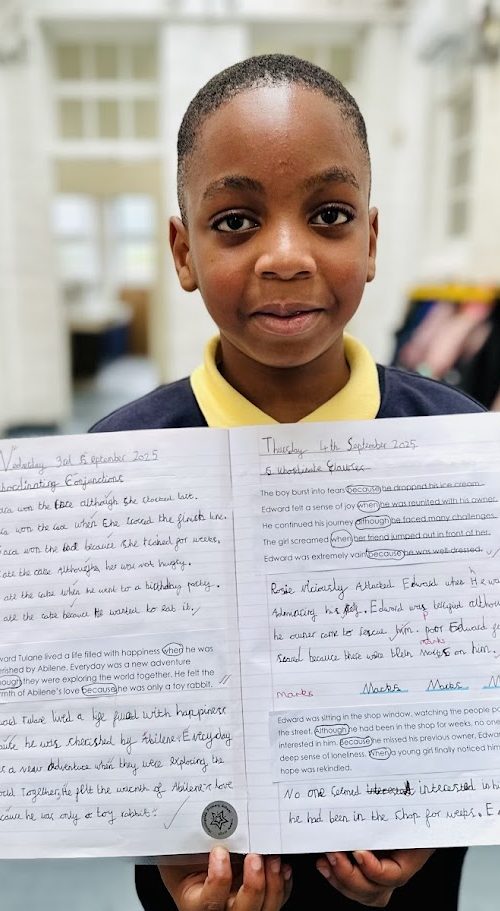 Wednesday 3rd September 2025
Subordinating Conjunctions
won the race although she started last.
won the race when she crossed the finish line.
won the because she trained for weeks.
ate the cake Although he was not hungry.
ate the cake when he went to a birthday party.
ate the cake because he wanted to eat it.
ward Tulane lived a life filled with happiness when he was
erished by Abilene. Everyday was a new adventure
hough they were exploring the world together. He felt the
rmth of Abilene's love because he was only a toy rabbit.
Tulane lived a life with happiness
he was cherished by Abilene. Everyday
a new adventure when they were exploring the
Together, He felt the warmth of Abilene's love
cause he was only a toy rabbit.
Thursday 4th September 2025
Clauses
The boy burst into tears because he dropped his ice cream.
Edward felt a sense of joy when he was reunited with his owner.
He continued his journey although he faced many challenges.
The girl screamed when her friend jumped out in front of her.
Edward was extremely vain because he was well dressed.
Rosie viciously Attacked Edward when He wa
his Edward was although
he owner came to rescue him. poor Edward
because there were on him.
marks
marks Marks Marks M
Edward was sitting in the shop window, watching the people pa
the street. Although he had been in the shop for weeks, no one
interested in him. Because he missed his previous owner, Edward
deep sense of loneliness. When a young girl finally noticed him
hope was rekindled.
No one seemed interested in hi
he had been in the shop for weeps. E